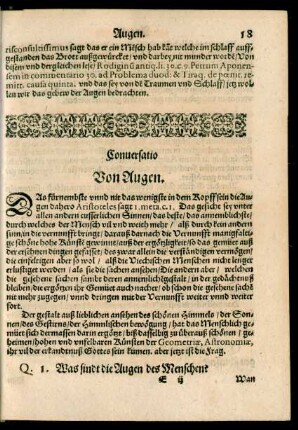 Augen. 18
risconsultissimus sagt das er ein Mēsch hab kāt welche im schlaff auff,
gestanden das Brott außgewürcket: vnd darbey nit munder wordē/ Von
disem vnd vergleichen lese/ Rodigin. antiq. li. 30. c. 9. Petrum Aponen-
sem in commentario 30. ad Problema duod: & Tiraq. de pœnit. re-
mitt. causa quinta. vnd das sey von dē Traumen vnd Schlaff/ jetz wol-
len wir das gebew der Augen bedrachten.
Conuersatio
Von Augen.
DAs fürnembste vnnd nit das wenigste in dem Kopff sein die Au
gen dahero Aristoteles sagt 1. meta. c. 1. Das gesicht sey vnter
allen andern eusserlichen Sinnen/ das beste/ das annemblichste/
durch welches der Mensch vil vnd weyth mehr/ alß durch kein andern
sinn in die vernunfft bringt/ darauß darnach die Vernunfft manigfalti-
ge schöne hohe Künst gewinne/ auß der ergözligkeit/ so das gemüet auß
der erzehlten dingen gefasset/ des wart allein die verständigen vermögen/
die einfeltigen aber nit/ als die Viechischen Menschen mehr langer
erlustiget werden/ als sie die sachen ansehen/ Die andern aber/ welche
die gesehene sachen sambt deren anmehmbligkeit/ in der gedächtnuß
bleiben/ die ergözen ihr Gemüet auch nacher/ ob schon die gesehene sacht
nit mehr zugegen/ vnnd dringen mit der Vernunfft weiter vnnd weiter
fort.
Der gestalt auß lieblichen ansehen des schönen Himmels/ der Son-
nen/ des Gestirns/ der Himmlischen bewögung/ hat das Menschlich ge-
müet sich dermassen darin ergözt/ biß daß selbig zu überauß schönen/ ge-
heimen/ hohen vnd vnfelbaren Künsten der Geometriæ, Astronomiæ,
ihr vil der erkandnuß Gottes sein kumen. aber jetzt ist die Frag.
Q. 1. Was sindt die Augen des Menschen?
E ij Wan